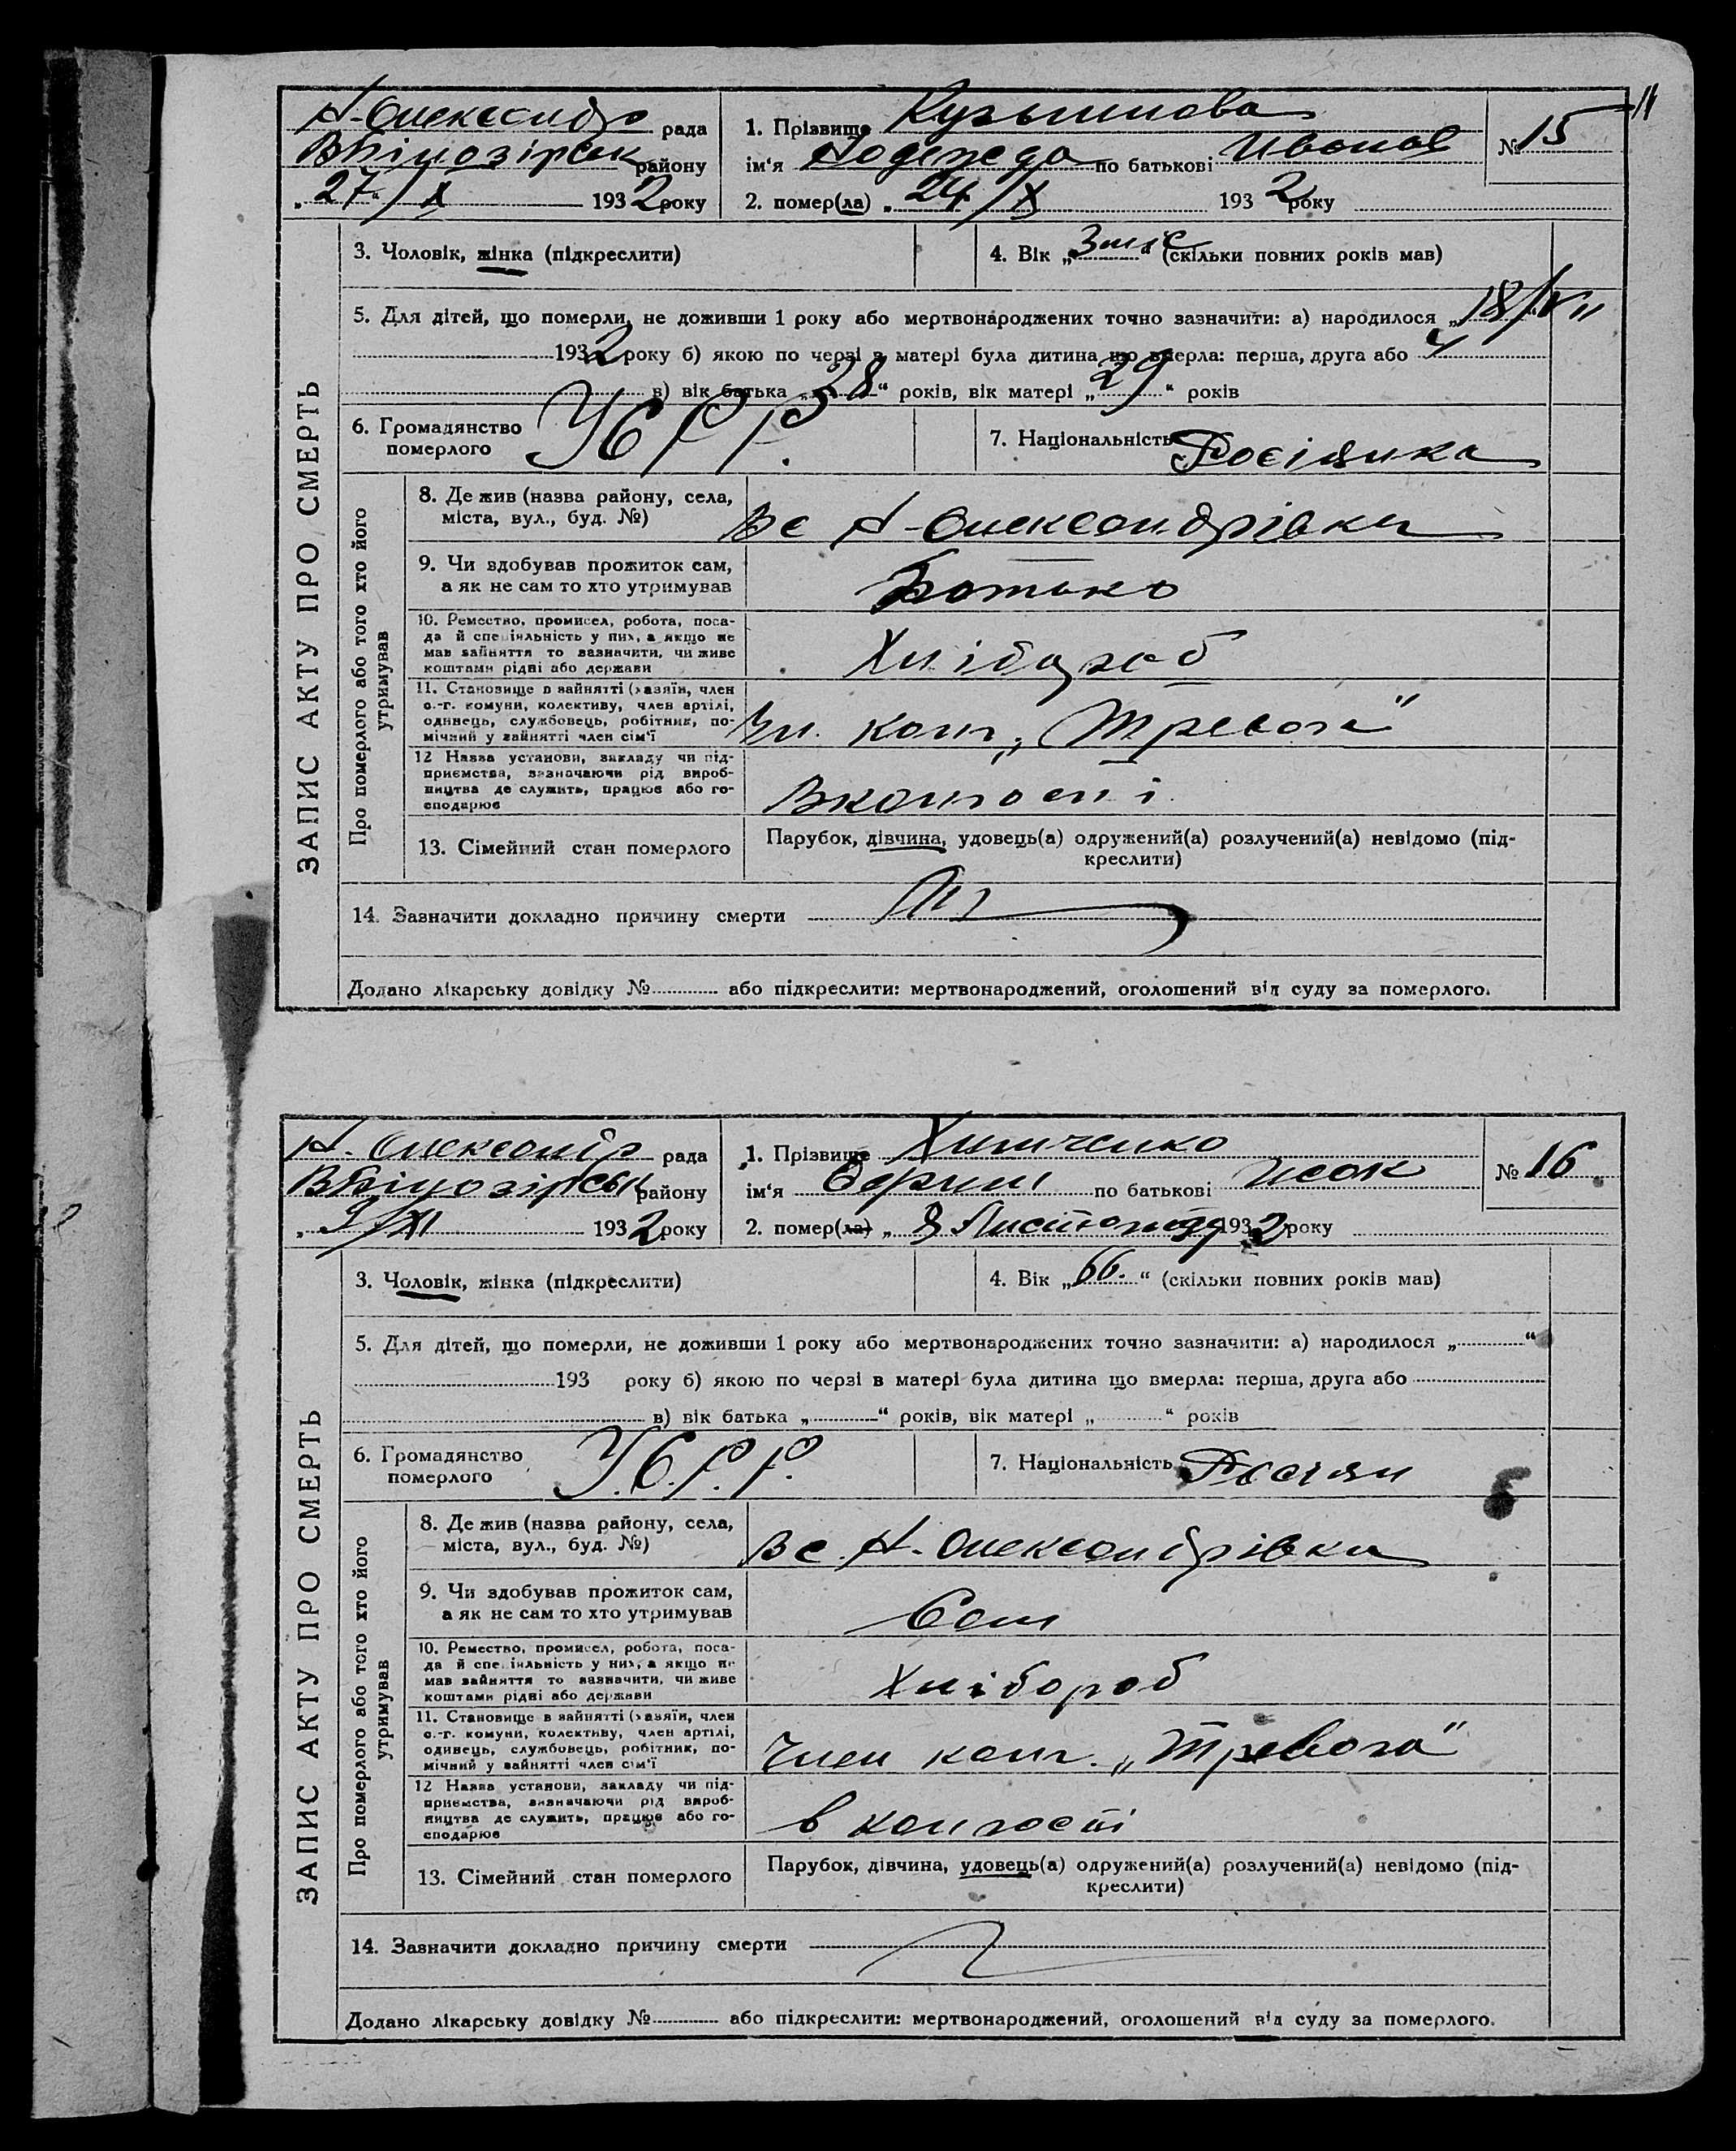 11
Н-Олександр рада
Вбілозірськ району
„27“/X 1932 року
1. Прізвище Кузьминова
ім‘я Надежда по батькові Иванов
2. помер(ла) „24/X 1932 року
№ 15
ЗАПИС АКТУ ПРО СМЕРТЬ
3. Чоловік, жінка (підкреслити)
4. Вік „3 міс“ (скільки повних років мав)
5. Для дітей, що померли, не доживши 1 року або мертвонароджених точно зазначити: а) народилося „18/VII
1932 року б) якою по черзі в матері була дитина що вмерла: перша, друга або 4
в) вік батька „28“ років, вік матері „29“ років
6. Громадянство
померлого УСРР.
7. Національність Росіянка
Про померлого або того хто його
утримував
8. Де жив (назва району, села,
міста, вул., буд. №)
Вс Н-Олександрівка
9. Чи здобував прожиток сам,
а як не сам то хто утримував
Батько
10. Ремество, промисел, робота, поса-
да й спеціяльність у них, а якщо не
мав зайняття то зазначити, чи живе
коштами рідні або держави
Хлібороб
11. Становище в зайнятті (хазяїн, член
с.-г. комуни, колективу, член артілі,
одинець, службовець, робітник, по-
мічний у зайнятті член сім‘ї
Чл. колг. „Тревога“
12 Назва установи, закладу чи під-
приємства, зазначаючи рід вироб-
ництва де служить, працює або го-
сподарює
Вколгоспі
13. Сімейний стан померлого
Парубок, дівчина, удовець(а) одружений(а) розлучений(а) невідомо (під-
креслити)
14. Зазначити докладно причину смерти
Додано лікарську довідку № або підкреслити: мертвонароджений, оголошений від суду за померлого.
Н. Олександр рада
Вбілозірськ району
„9/XI 1932 року
1. Прізвище Химченко
ім‘я по батькові Исак
2. помер(ла) „8 Листопада 1932 року
№ 16
ЗАПИС АКТУ ПРО СМЕРТЬ
3. Чоловік, жінка (підкреслити)
4. Вік „66.“ (скільки повних років мав)
5. Для дітей, що померли, не доживши 1 року або мертвонароджених точно зазначити: а) народилося „ “
193 року б) якою по черзі в матері була дитина що вмерла: перша, друга або
в) вік батька „ “ років, вік матері „ “ років
6. Громадянство
померлого У.С.Р.Р.
7. Національність Росіян
Про померлого або того хто його
утримував
8. Де жив (назва району, села,
міста, вул., буд. №)
Вс Н-Олександрівка
9. Чи здобував прожиток сам,
а як не сам то хто утримував
Сам
10. Ремество, промисел, робота, поса-
да й спеціяльність у них, а якщо не
мав зайняття то зазначити, чи живе
коштами рідні або держави
Хлібороб
11. Становище в зайнятті (хазяїн, член
с.-г. комуни, колективу, член артілі,
одинець, службовець, робітник, по-
мічний у зайнятті член сім‘ї
Член колг. „Тревога“
12 Назва установи, закладу чи під-
приємства, зазначаючи рід вироб-
ництва де служить, працює або го-
сподарює
в колгоспі
13. Сімейний стан померлого
Парубок, дівчина, удовець(а) одружений(а) розлучений(а) невідомо (під-
креслити)
14. Зазначити докладно причину смерти
Додано лікарську довідку № або підкреслити: мертвонароджений, оголошений від суду за померлого.